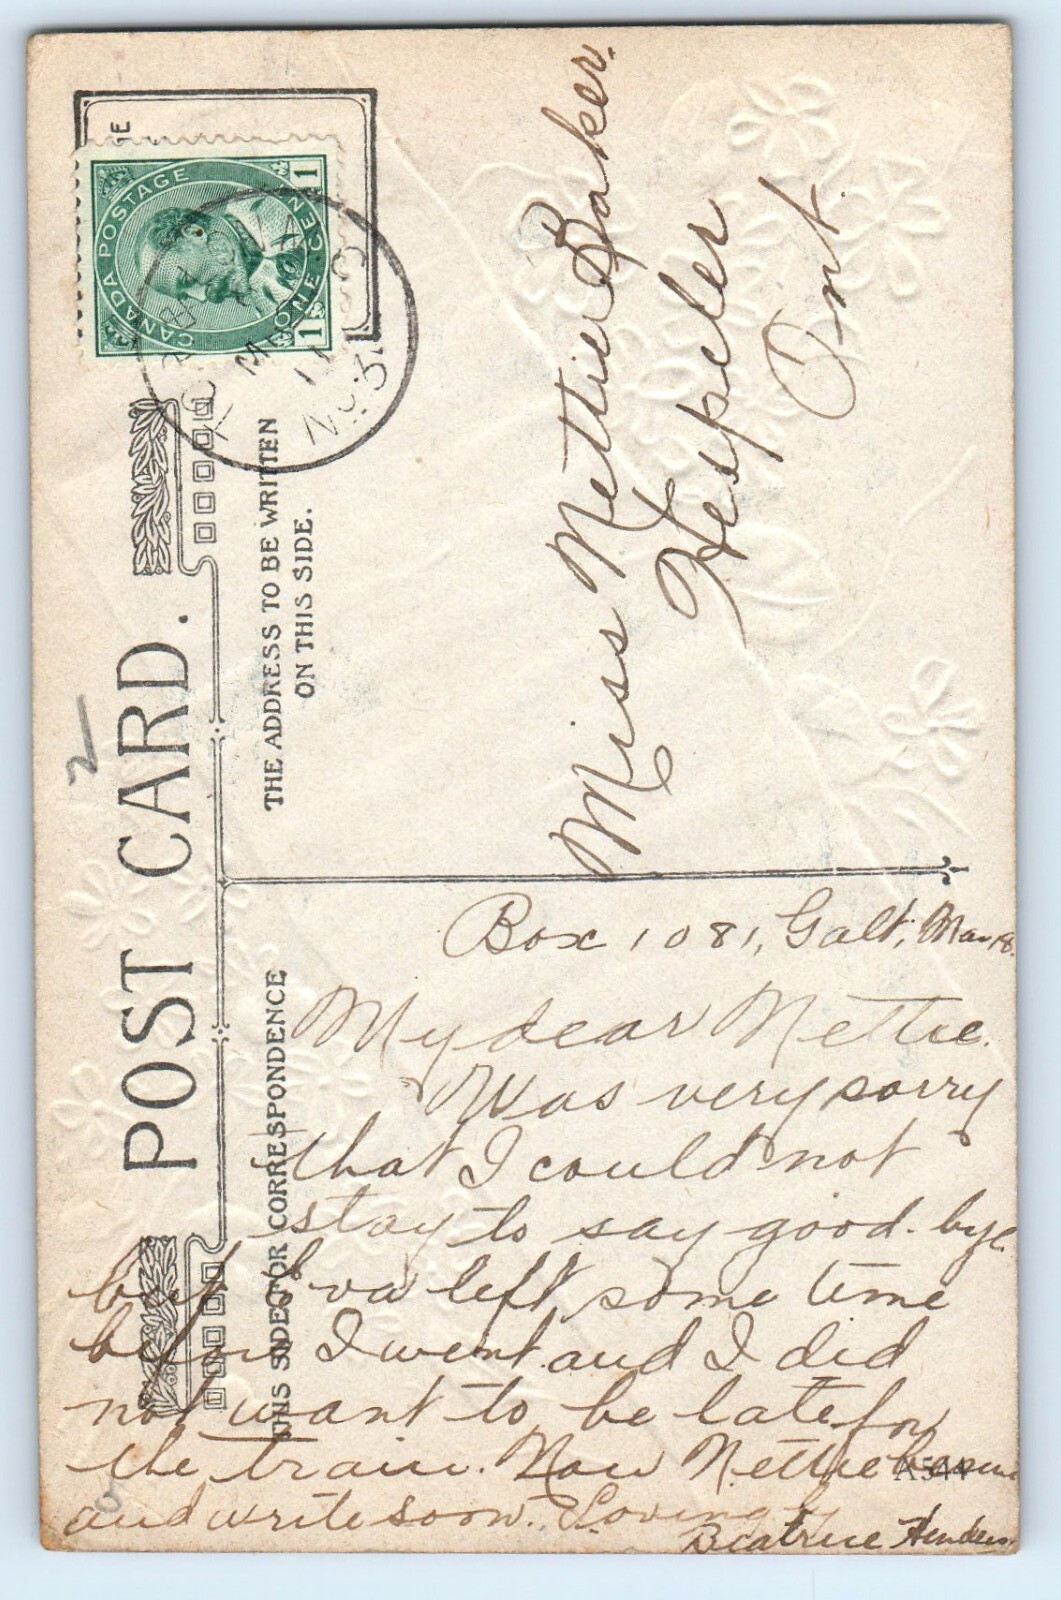 POST CARD.
THE ADDRESS TO BE WRITTEN
ON THIS SIDE.
THIS SIDE FOR CORRESPONDENCE
CANADA POSTAGE
ONE CENT
1 1
Miss Nettie Baker.
Hespeler
Ont.
Box 1081, Galt, Mar 18.
My dear Nettie.
Was very sorry
that I could not
stay to say good-bye.
but Eva left some time
before I went and I did
not want to be late for
the train. Now Nettie be sure
and write soon. Loving
Beatrice
A544
2